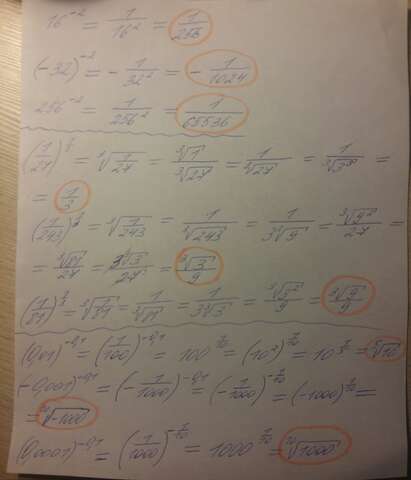 16⁻² = 1/16² = 1/256
(-32)⁻² = - 1/32² = - 1/1024
256⁻² = 1/256² = 1/65536
(1/27)^(1/3) = ∛(1/27) = ∛1/∛27 = 1/∛27 = 1/∛3³ =
= 1/3
(1/243)^(1/3) = ∛(1/243) = 1/∛243 = 1/(3∛9) = ∛9²/27 =
= ∛81/27 = 3∛3/27 = ∛3/9
(1/81)^(1/3) = ∛(1/81) = 1/∛81 = 1/(3∛3) = ∛3²/9 = ∛9/9
(0,01)^(-0,1) = (1/100)^(-0,1) = 100^(1/10) = (10²)^(1/10) = 10^(1/5) = ⁵√10
(-0,001)^(-0,1) = (-1/1000)^(-0,1) = (-1/1000)^(-1/10) = (-1000)^(1/10) =
= ¹⁰√-1000
(0,0001)^(-0,1) = (1/1000)^(-1/10) = 1000^(1/10) = ¹⁰√1000